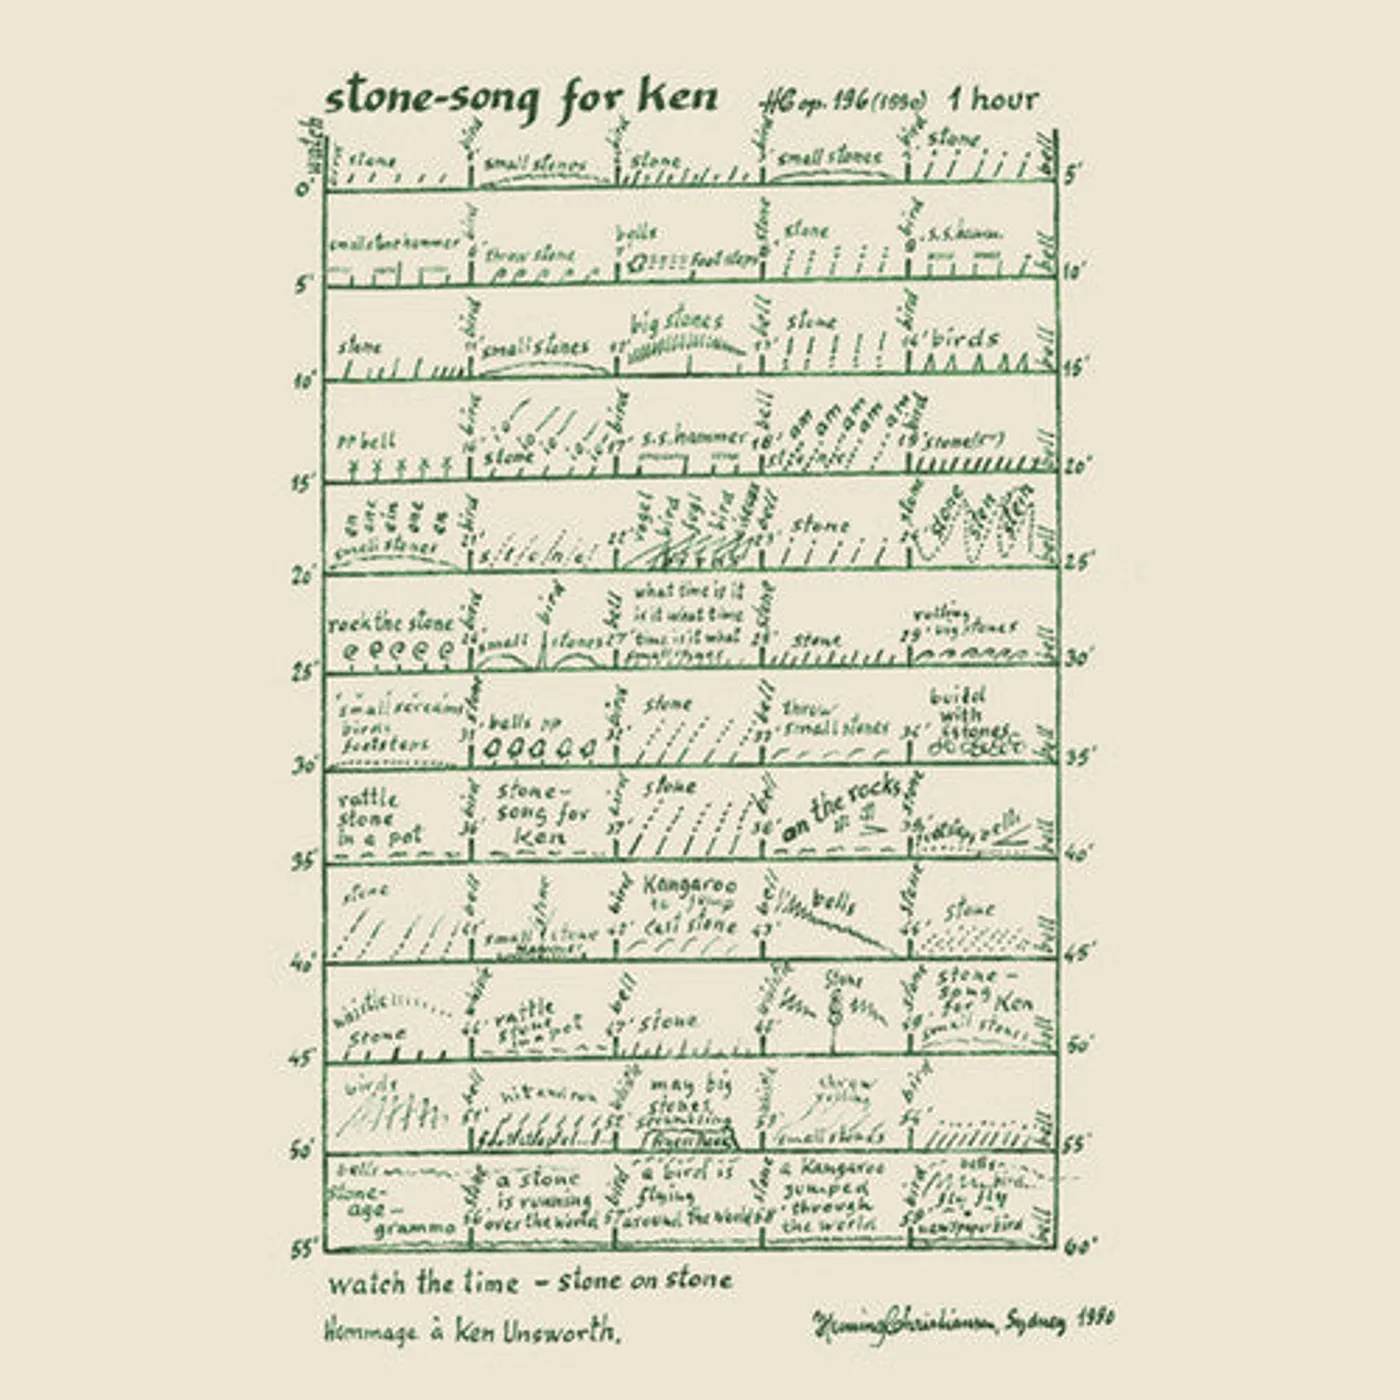 stone-song for Ken HC op. 196 (1990) 1 hour
watch bird bird bird bird bell
stone small stones stone small stones stone
0' 5'
bird stone bird bell
small stone hammer throw stone bells footsteps stone s.s. hamm.
5' 10'
bird bell bird bell
stone small stones 12' big stones 13' stone 14' birds
10' 15'
bird bird bell bird bell
pp bell stone 17' s.s. hammer 18' am am am am am 19' stone
15' 20'
en one ein one en bird vogel bird fugl bird bell stone stone sten stein bell
small stones s t o n e 22' 23' stone
20' 25'
bird bird bell what time is it stone bell
is it what time
rock the stone small stones 27' time is it what 28' stone 29' rolling big stones
small stones
25' 30'
small screams stone bird stone bell build bell
birds 31' bells pp 32' 33' throw 34' with
footsteps small stones stones
30' 35'
rattle bird stone- bird stone bell on the rocks stone bell
stone 36' song for 37' 38' 39' footsteps bells
in a pot Ken
35' 40'
stone bell stone bird Kangaroo bell bells stone stone bell
41' small stone 42' to jump 43' 44'
hammer cast stone
40' 45'
whistle whistle rattle bell whistle stone stone stone- bell
stone 46' stone 47' stone 48' 49' song
in a pot for Ken
small stones
45' 50'
birds bell hit and run whistle may big whistle throw bird bell
51' 52' stones 53' rolling 54'
scrambling small stones
Ayers Rock
50' 55'
bells stone a stone bird a bird is stone a Kangaroo bird bells bell
stone- is running flying jumped bird
age- through fly fly
gramme 56' over the world 57' around the world 58' the world 59' newspaperbird
55' 60'
watch the time – stone on stone
Hommage à Ken Unsworth.
Henning Christiansen, Sydney 1990